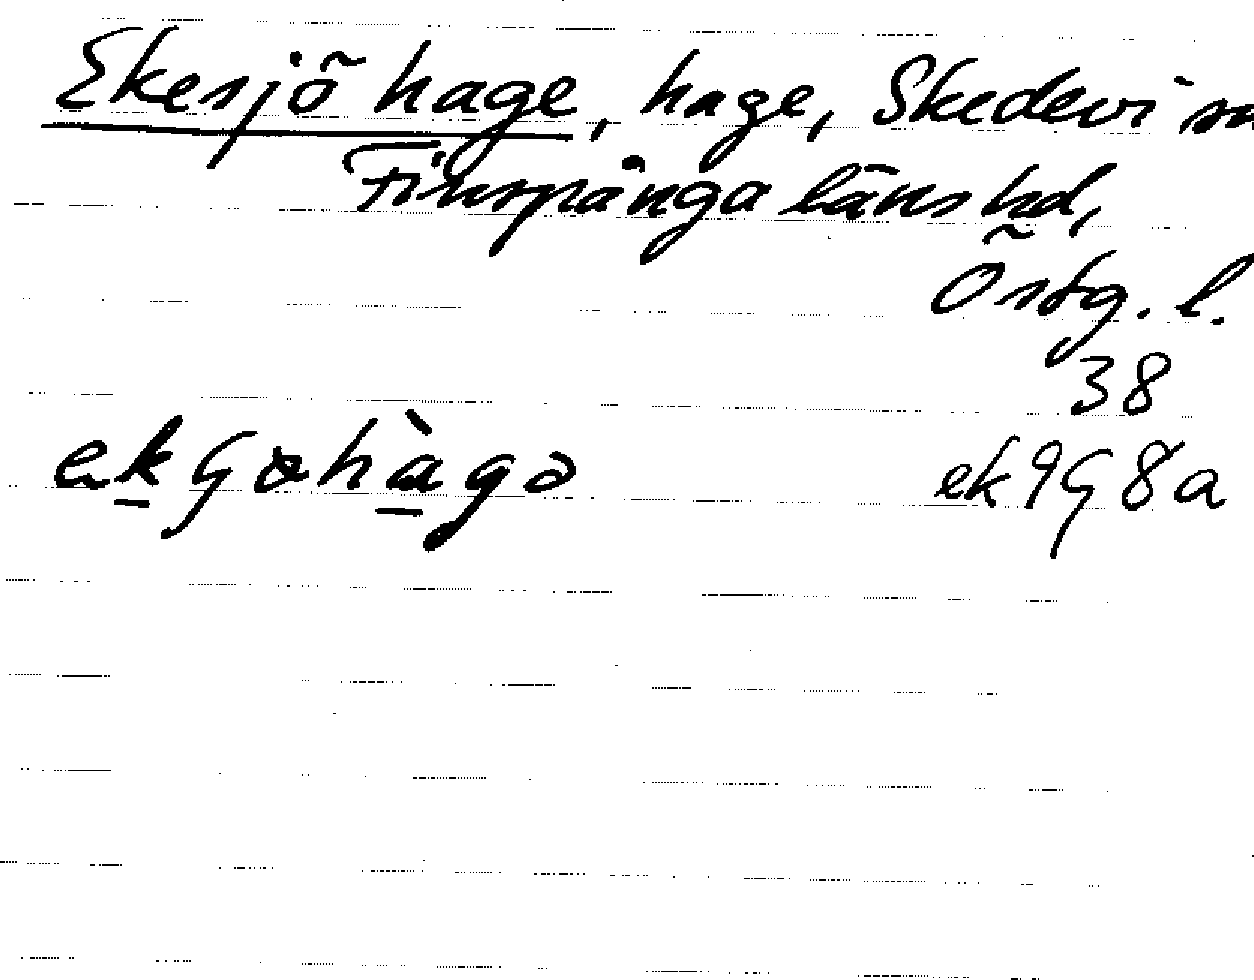 Ekesjö hage, hage, Skedevi sn
Finspånga läns hd,
Östg. l.
38
ek9G8a